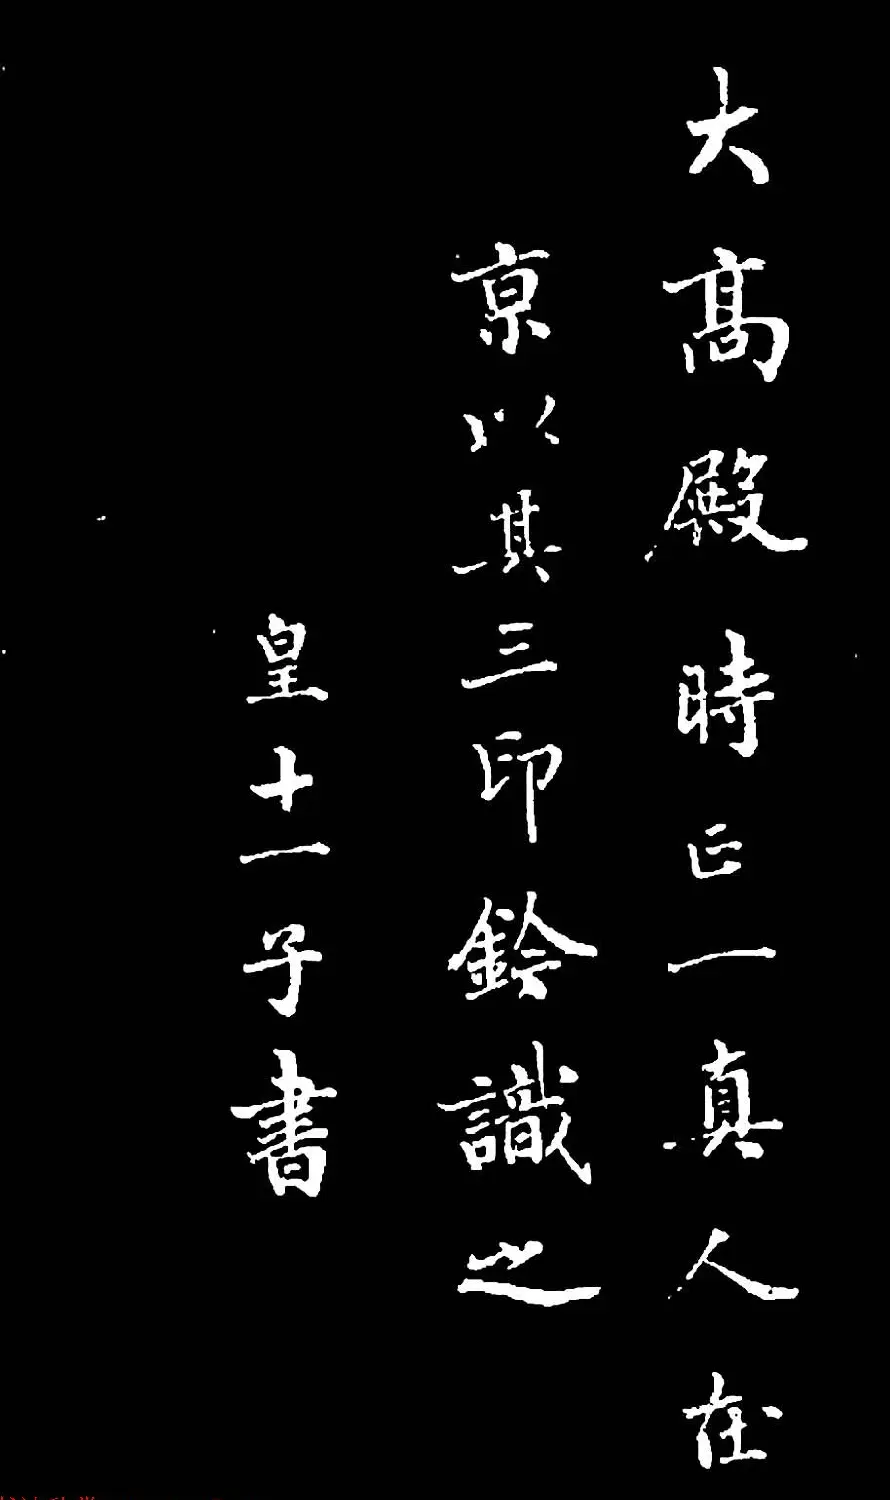 大高殿時正一真人在
京以其三印鈐識之
皇十一子書